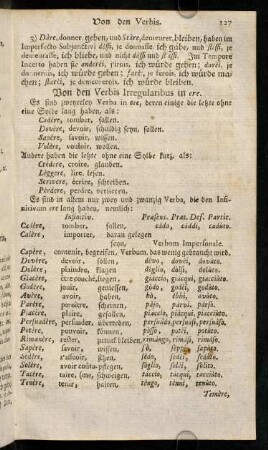 Von den Verbis. 127
3) Dàre, donner, geben, und stàre, demeurer, bleiben, haben im
Imperfecto Subjunctivi déssi, je donnasse, ich gäbe, und stéssi, je
demeurasse, ich bliebe, und nicht dàssi und stàssi. Im Tempore
Incerto haben sie anderéi, j'irois, ich würde gehen; daréi, je
donnerois, ich würde geben; faréi, je ferois, ich würde ma-
chen; staréi, je demeurerois, ich würde bleiben.
Von den Verbis Irregularibus in ere.
Es sind zweyerley Verba in ere, deren einige die letzte ohne
eine Sylbe lang haben, als:
Cadére, tomber, fallen.
Dovére, devoir, schuldig seyn, sollen.
Sapére, savoir, wissen.
Volére, vouloir, wollen.
Andere haben die letzte ohne eine Sylbe kurz, als:
Crédere, croire, glauben.
Léggere, lire, lesen.
Scrivere, écrire, schreiben.
Pérdere, perdre, verlieren.
Es sind in allem nur zwey und zwanzig Verba, die den Infi-
nitivum ere lang haben, nemlich:
Infinitiv. Præsens. Præt. Def. Partic.
Cadére, tomber, fallen, càdo, càddi, cadùto.
Calére, importer, daran gelegen
seyn, Verbum Impersonale.
Capére, contenir, begreifen, Verbum, das wenig gebraucht wird.
Dovére, devoir, sollen,
Dolére, plaindre, klagen,
Giacére, être couché, liegen, giàccio, giàcqui,
Godére, jouir, geniessen, gódo, godéi, godùto.
Avére, avoir, haben,
Parére, paroître, scheinen,
Piacére, plaire, gefallen, piàccio, piàcqui,
Persuadére, persuader, überreden,
Potére, pouvoir, können,
Rimanére, rester, zurück bleiben,
Sapére, savoir, wissen,
Sedére, s'asseoir, sitzen,
Solére, avoir coûtume, pflegen,
Tacére, taire, (se) schweigen,
Tenére, tenir, halten, téngo, ténni, tenùto.
Temére,